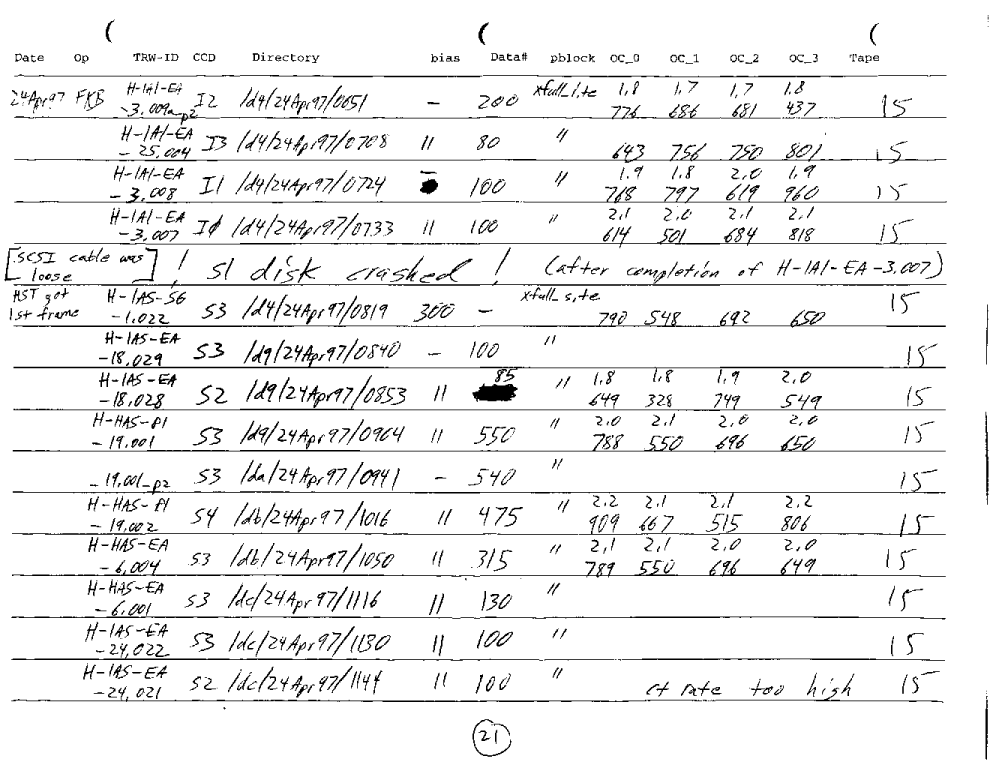 Date Op TRW-ID CCD Directory bias Data# pblock OC_0 OC_1 OC_2 OC_3 Tape
24Apr97 FKB H-IAI-EA I2 /d4/24Apr97/0651 — 200 xfull_i.te 1.8 1.7 1.7 1.8 15
-3.009a_p2 776 686 681 437
H-IAI-EA I3 /d4/24Apr97/0708 11 80 " 15
-25.004 643 756 750 801
H-IAI-EA I1 /d4/24Apr97/0724 — 100 " 1.9 1.8 2.0 1.9 15
-3.008 768 797 619 960
H-IAI-EA IØ /d4/24Apr97/0733 11 100 " 2.1 2.0 2.1 2.1 15
-3.007 614 501 684 818
[SCSI cable was loose] ! S1 disk crashed ! (after completion of H-IAI-EA-3.007)
HST got H-IAS-SG S3 /d4/24Apr97/0819 300 — xfull_s.te 15
1st frame -1.022 790 548 692 650
H-IAS-EA S3 /d9/24Apr97/0840 — 100 " 15
-18.029
H-IAS-EA S2 /d9/24Apr97/0853 11 85 " 1.8 1.8 1.9 2.0 15
-18.028 649 328 749 549
H-HAS-PI S3 /d9/24Apr97/0904 11 550 " 2.0 2.1 2.0 2.0 15
-19.001 788 550 696 650
-19.001_p2 S3 /da/24Apr97/0941 — 540 " 15
H-HAS-PI S4 /db/24Apr97/1016 11 475 " 2.2 2.1 2.1 2.2 15
-19.002 909 667 515 806
H-HAS-EA S3 /db/24Apr97/1050 11 315 " 2.1 2.1 2.0 2.0 15
-6.004 789 550 696 649
H-HAS-EA S3 /dc/24Apr97/1116 11 130 " 15
-6.001
H-IAS-EA S3 /dc/24Apr97/1130 11 100 " 15
-24.022
H-IAS-EA S2 /dc/24Apr97/1144 11 100 " ct rate too high 15
-24.021
21